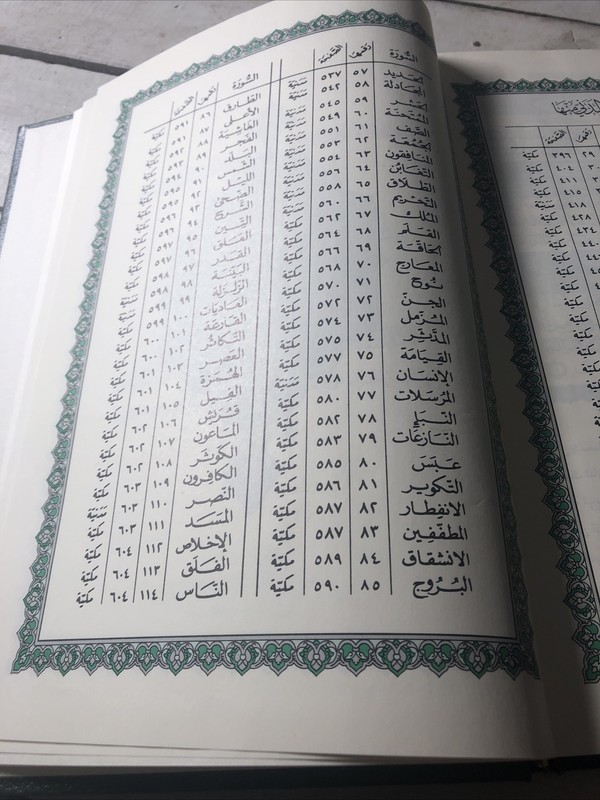 ٢٩ ٣٩٦ مكية
٤٠٤ مكية
٤١١ مكية
٤١٥
٤١٨
٤٢٨
٤٣٤
السورة رقمها الصفحة
الحديد ٥٧ ٥٣٧ مدنية
المجادلة ٥٨ ٥٤٢ مدنية
الحشر ٥٩ ٥٤٥ مدنية
الممتحنة ٦٠ ٥٤٩ مدنية
الصف ٦١ ٥٥١ مدنية
الجمعة ٦٢ ٥٥٣ مدنية
المنافقون ٦٣ ٥٥٤ مدنية
التغابن ٦٤ ٥٥٦ مدنية
الطلاق ٦٥ ٥٥٨ مدنية
التحريم ٦٦ ٥٦٠ مدنية
الملك ٦٧ ٥٦٢ مكية
القلم ٦٨ ٥٦٤ مكية
الحاقة ٦٩ ٥٦٦ مكية
المعارج ٧٠ ٥٦٨ مكية
نوح ٧١ ٥٧٠ مكية
الجن ٧٢ ٥٧٢ مكية
المزمل ٧٣ ٥٧٤ مكية
المدثر ٧٤ ٥٧٥ مكية
القيامة ٧٥ ٥٧٧ مكية
الإنسان ٧٦ ٥٧٨ مدنية
المرسلات ٧٧ ٥٨٠ مكية
النبإ ٧٨ ٥٨٢ مكية
النازعات ٧٩ ٥٨٣ مكية
عبس ٨٠ ٥٨٥ مكية
التكوير ٨١ ٥٨٦ مكية
الانفطار ٨٢ ٥٨٧ مكية
المطففين ٨٣ ٥٨٧ مكية
الانشقاق ٨٤ ٥٨٩ مكية
البروج ٨٥ ٥٩٠ مكية
السورة رقمها الصفحة
الطارق ٨٦ ٥٩١ مكية
الأعلى ٨٧ ٥٩١ مكية
الغاشية ٨٨ ٥٩٢ مكية
الفجر ٨٩ ٥٩٣ مكية
البلد ٩٠ ٥٩٤ مكية
الشمس ٩١ ٥٩٥ مكية
الليل ٩٢ ٥٩٥ مكية
الضحى ٩٣ ٥٩٦ مكية
الشرح ٩٤ ٥٩٦ مكية
التين ٩٥ ٥٩٧ مكية
العلق ٩٦ ٥٩٧ مكية
القدر ٩٧ ٥٩٨ مكية
البينة ٩٨ ٥٩٨ مدنية
الزلزلة ٩٩ ٥٩٩ مدنية
العاديات ١٠٠ ٥٩٩ مكية
القارعة ١٠١ ٦٠٠ مكية
التكاثر ١٠٢ ٦٠٠ مكية
العصر ١٠٣ ٦٠١ مكية
الهمزة ١٠٤ ٦٠١ مكية
الفيل ١٠٥ ٦٠١ مكية
قريش ١٠٦ ٦٠٢ مكية
الماعون ١٠٧ ٦٠٢ مكية
الكوثر ١٠٨ ٦٠٢ مكية
الكافرون ١٠٩ ٦٠٣ مكية
النصر ١١٠ ٦٠٣ مدنية
المسد ١١١ ٦٠٣ مكية
الإخلاص ١١٢ ٦٠٤ مكية
الفلق ١١٣ ٦٠٤ مكية
الناس ١١٤ ٦٠٤ مكية